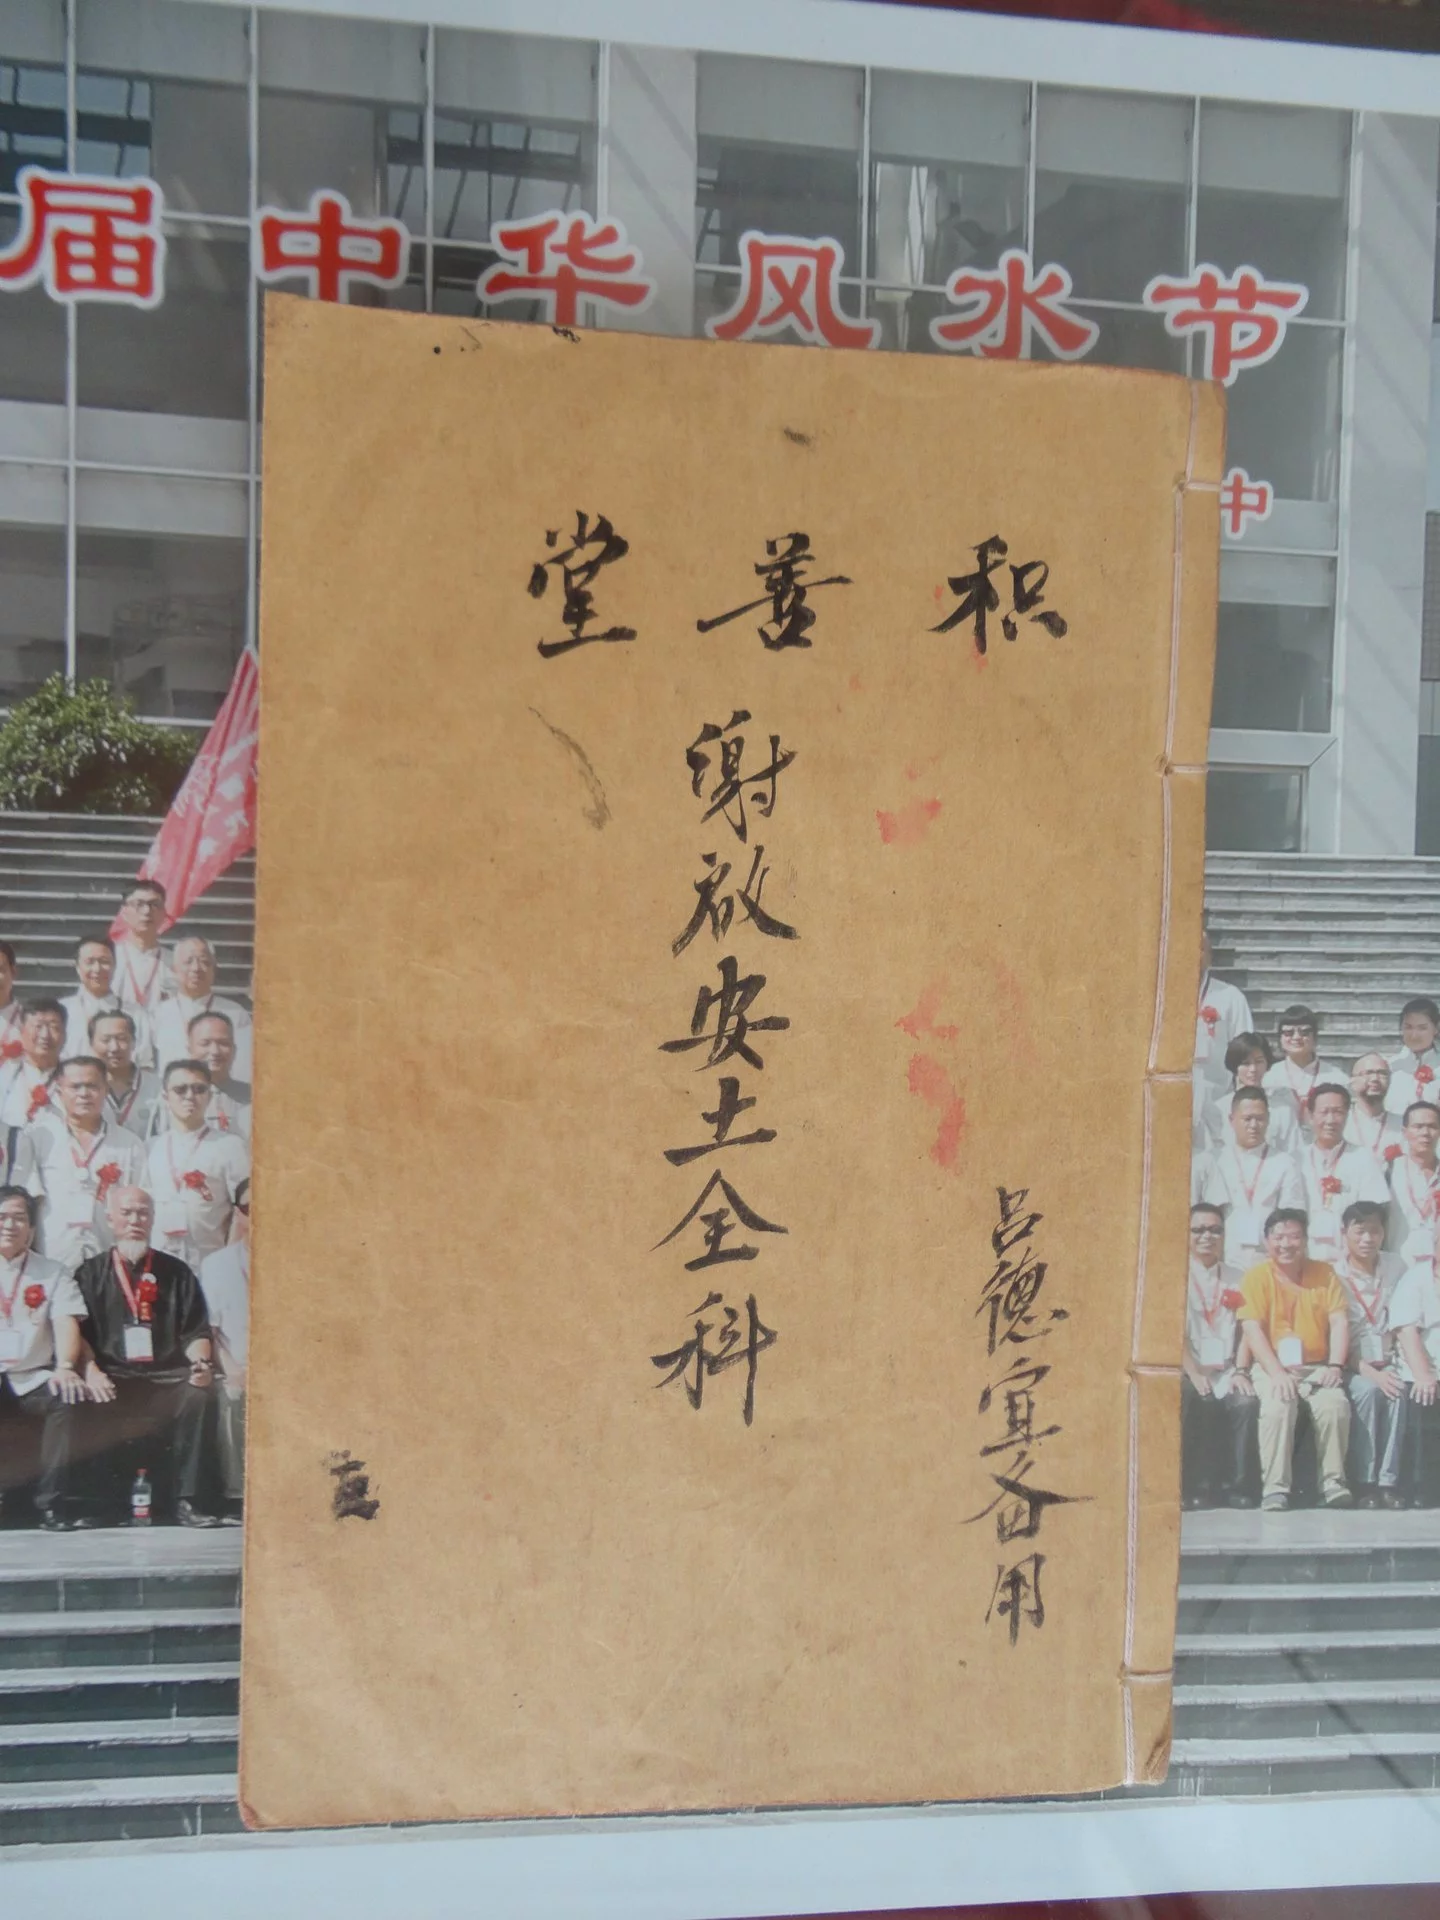 届中华风水节
中
积善堂
谢啟安土全科
吕德宜备用